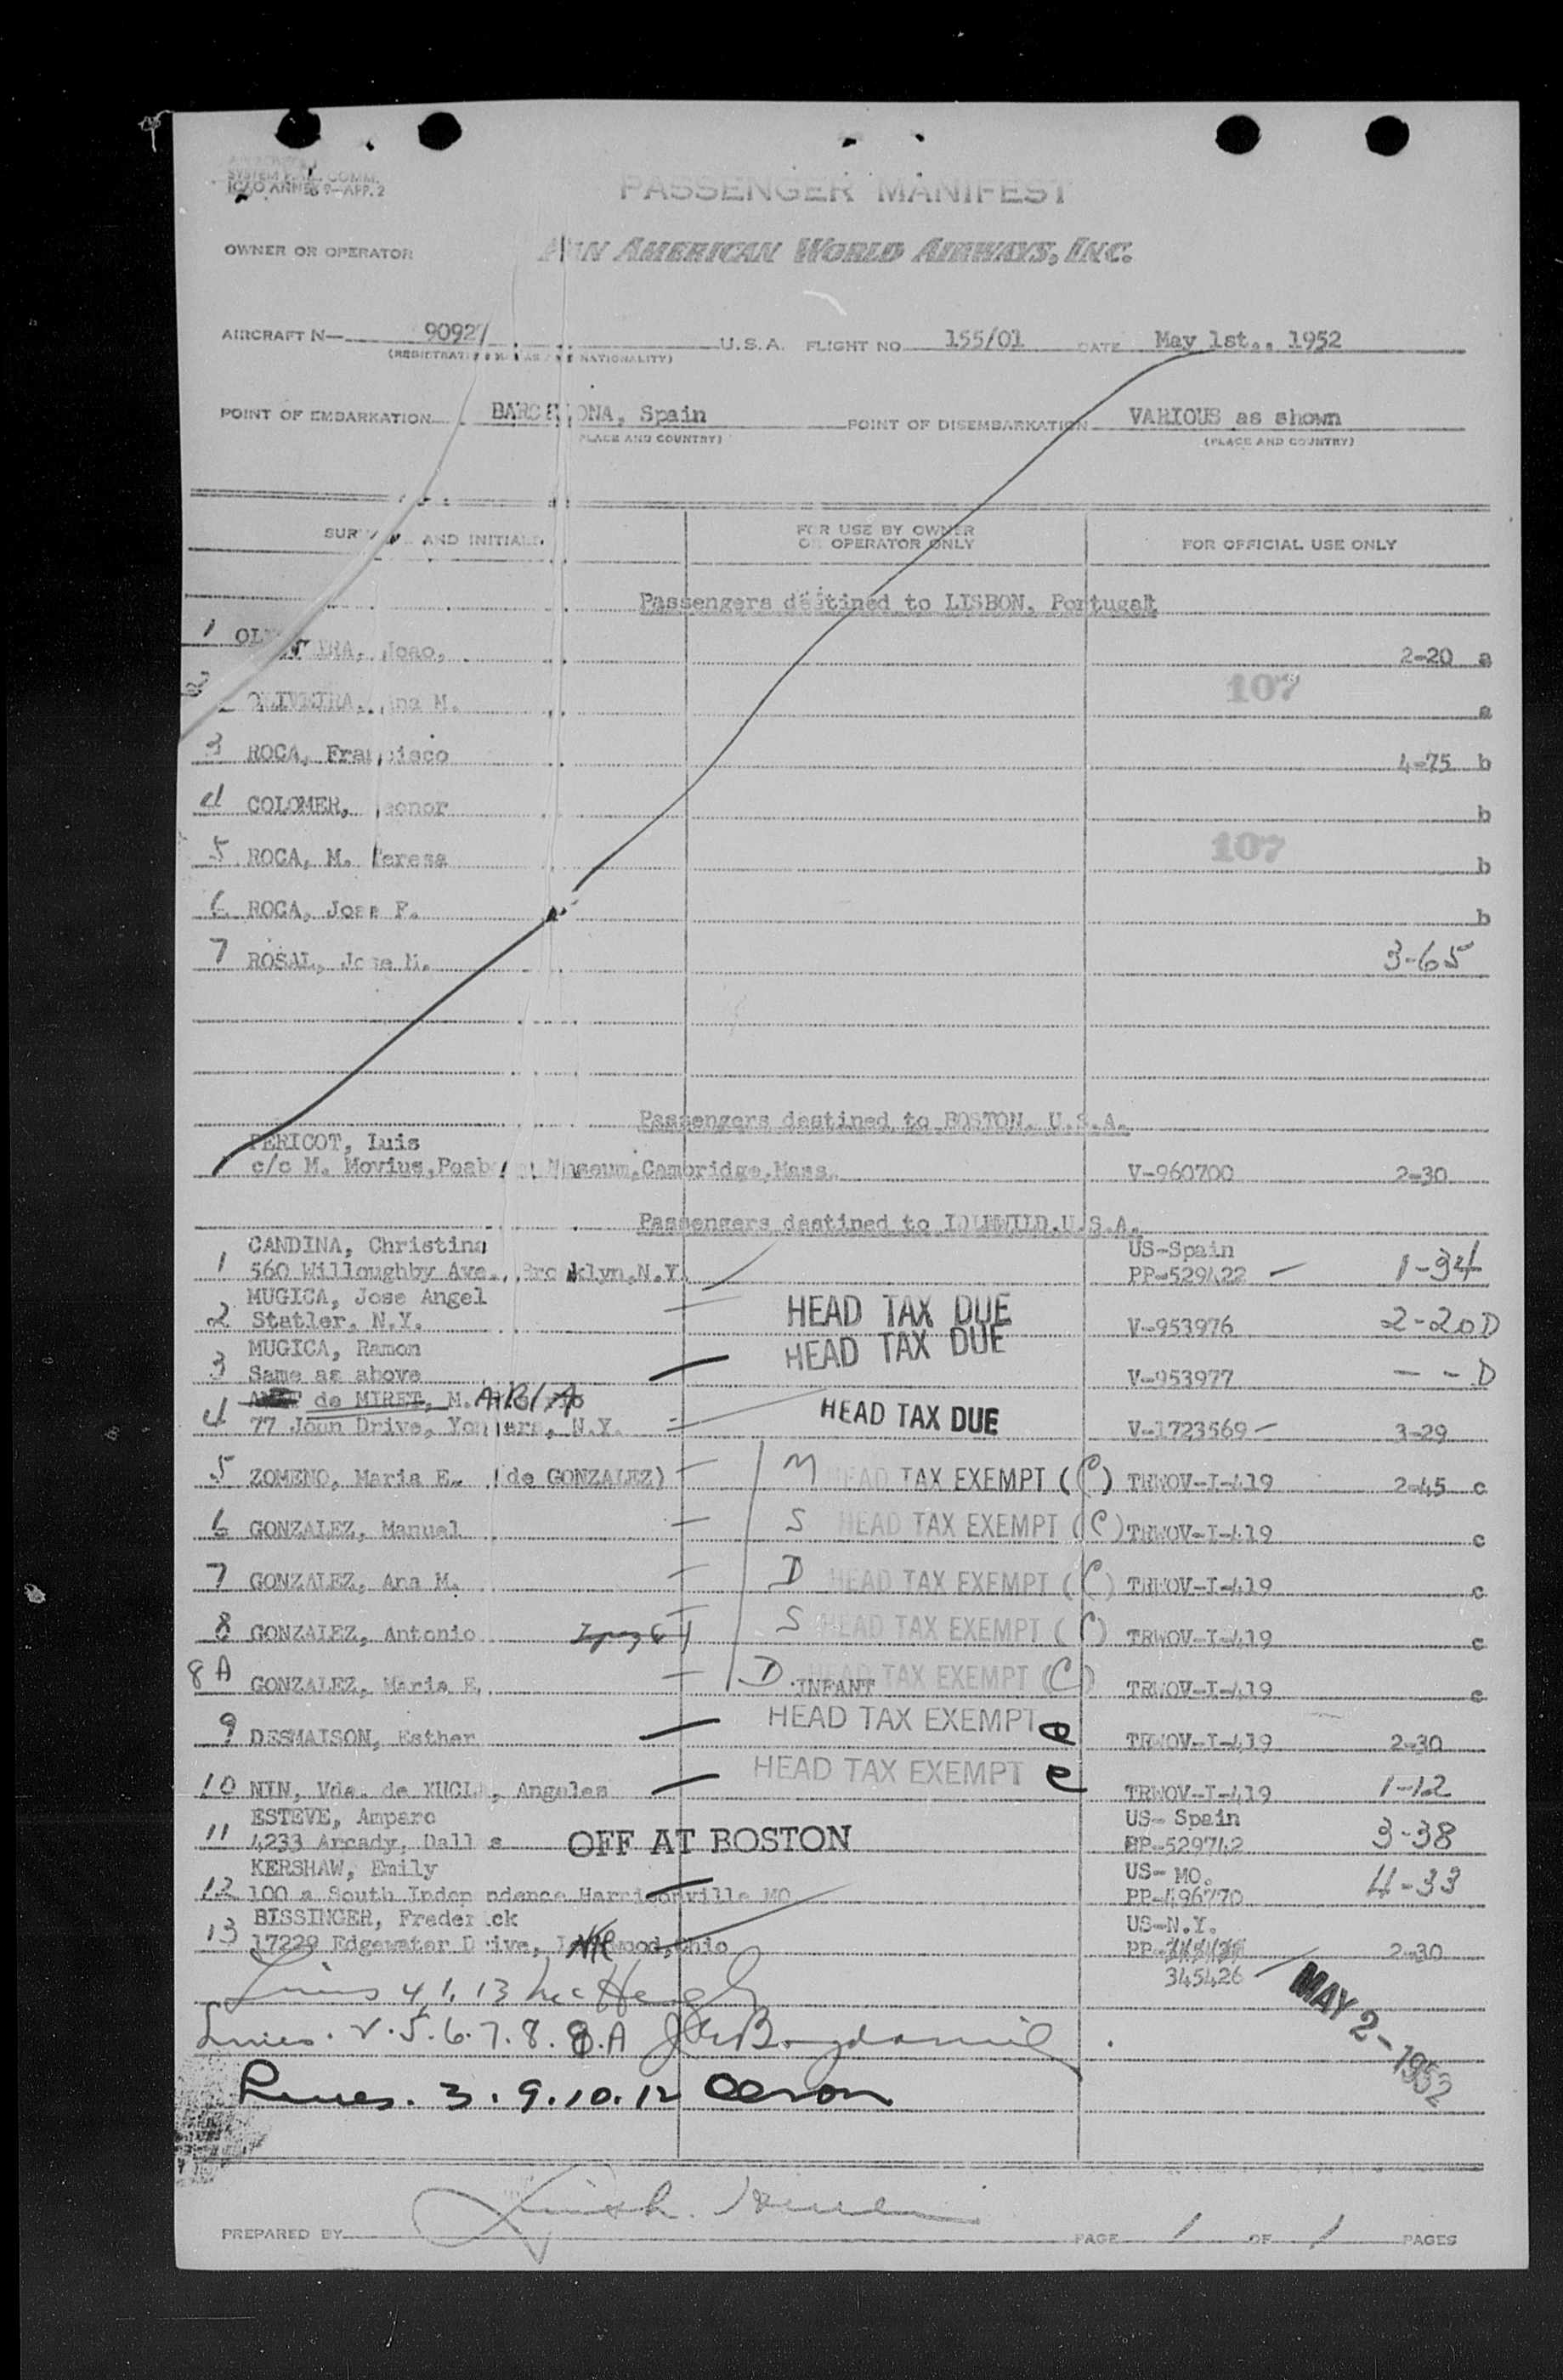 SYSTEM COMM.
ICAO ANNEX 9-APP. 2
PASSENGER MANIFEST
OWNER OR OPERATOR PAN AMERICAN WORLD AIRWAYS, INC.
AIRCRAFT N— 90927 U.S.A. FLIGHT NO. 155/01 DATE May 1st., 1952
(REGISTRATION NATIONALITY)
POINT OF EMBARKATION BARCELONA, Spain POINT OF DISEMBARKATION VARIOUS as shown
(PLACE AND COUNTRY) (PLACE AND COUNTRY)
SURNAME AND INITIALS FOR USE BY OWNER OR OPERATOR ONLY FOR OFFICIAL USE ONLY
Passengers destined to LISBON, Portugal
1 OLIVEIRA, Joao, 2-20 a
107
2 OLIVEIRA, Ana M. a
3 ROCA, Francisco 4-75 b
4 COLOMER, Leonor b
107
5 ROCA, M. Teresa b
6 ROCA, Jose F. b
7 ROSAL, Jose M. 3-65
Passengers destined to BOSTON, U.S.A.
PERICOT, Luis
c/c M. Movius, Peabody Museum, Cambridge, Mass. V-960700 2-30
Passengers destined to IDLEWILD, U.S.A.
CANDINA, Christina US-Spain
1 560 Willoughby Ave., Brooklyn, N.Y. PP-529422 1-34
MUGICA, Jose Angel HEAD TAX DUE
2 Statler, N.Y. V-953976 2-20D
MUGICA, Ramon HEAD TAX DUE
3 Same as above V-953977 - - D
de MIRET, M.
4 77 Joan Drive, Yonkers, N.Y. HEAD TAX DUE V-1723569 3-29
5 ZOMENO, Maria E. (de GONZALEZ) M HEAD TAX EXEMPT (C) TRWOV-I-419 2-45 c
6 GONZALEZ, Manual S HEAD TAX EXEMPT (C) TRWOV-I-419 c
7 GONZALEZ, Ana M. D HEAD TAX EXEMPT (C) TRWOV-I-419 c
8 GONZALEZ, Antonio S HEAD TAX EXEMPT (C) TRWOV-I-419 c
8A GONZALEZ, Maria E. D INFANT HEAD TAX EXEMPT (C) TRWOV-I-419 c
9 DESMAISON, Esther HEAD TAX EXEMPT e TRWOV-I-419 2-30
10 NIN, Vda. de Angeles HEAD TAX EXEMPT e TRWOV-I-419 1-12
ESTEVE, Amparo US- Spain
11 4233 Arcady, Dallas OFF AT BOSTON PP-529742 3-38
KERSHAW, Emily US- MO.
12 100 a South Independence Harrisonville MO PP-496770 4-33
BISSINGER, Frederick US-N.Y.
13 17229 Edgewater Drive, Lakewood, Ohio PP- 2-30
345426
MAY 2 - 1952
Lines 4, 1, 13
Lines. 2. 5. 6. 7. 8. 8.A
Lines. 3. 9. 10. 12
PREPARED BY PAGE 1 OF 1 PAGES